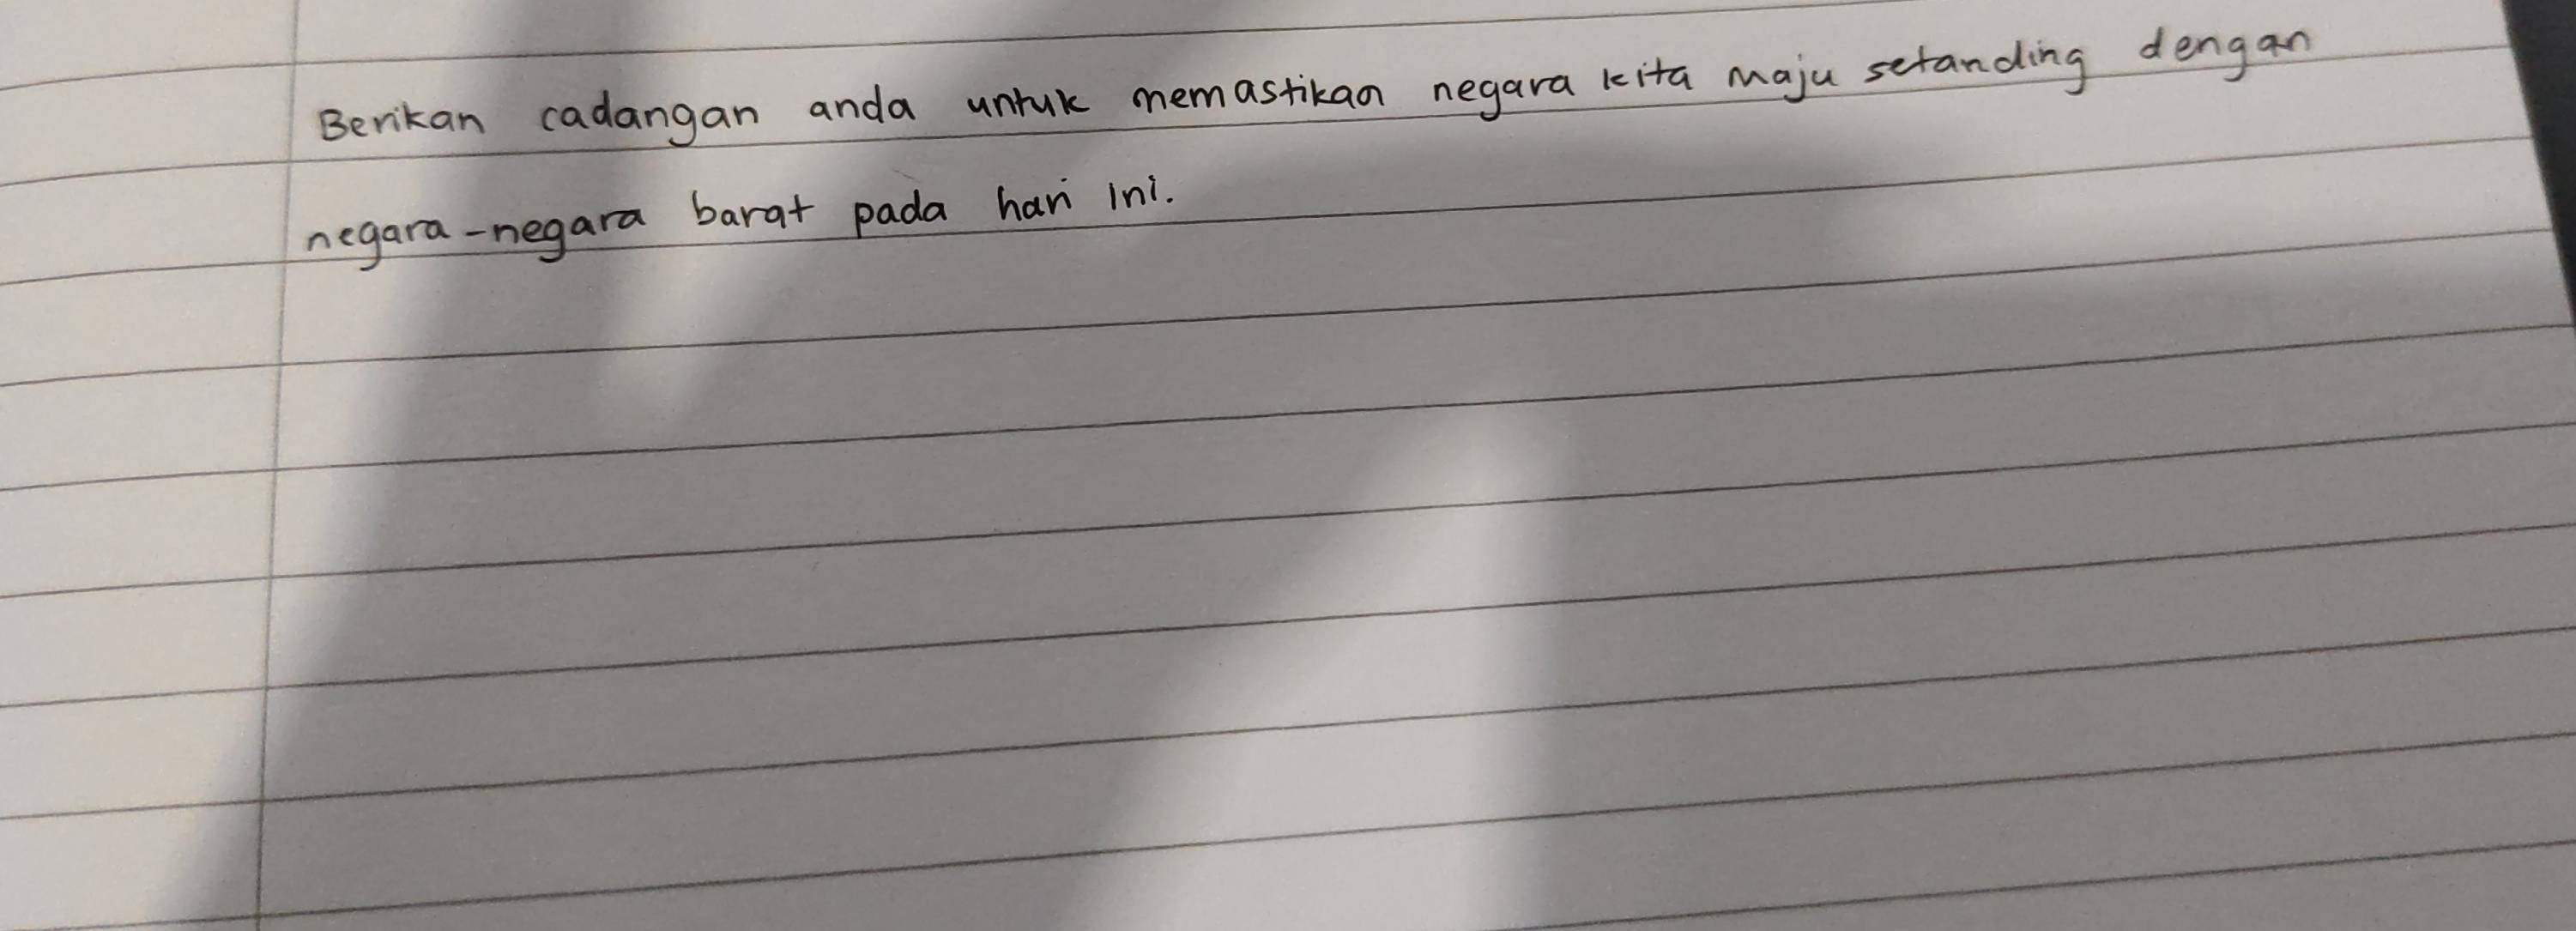 Berikan cadangan anda untuk memastikan negara kita maju setanding dengan
negara-negara barat pada hari ini.